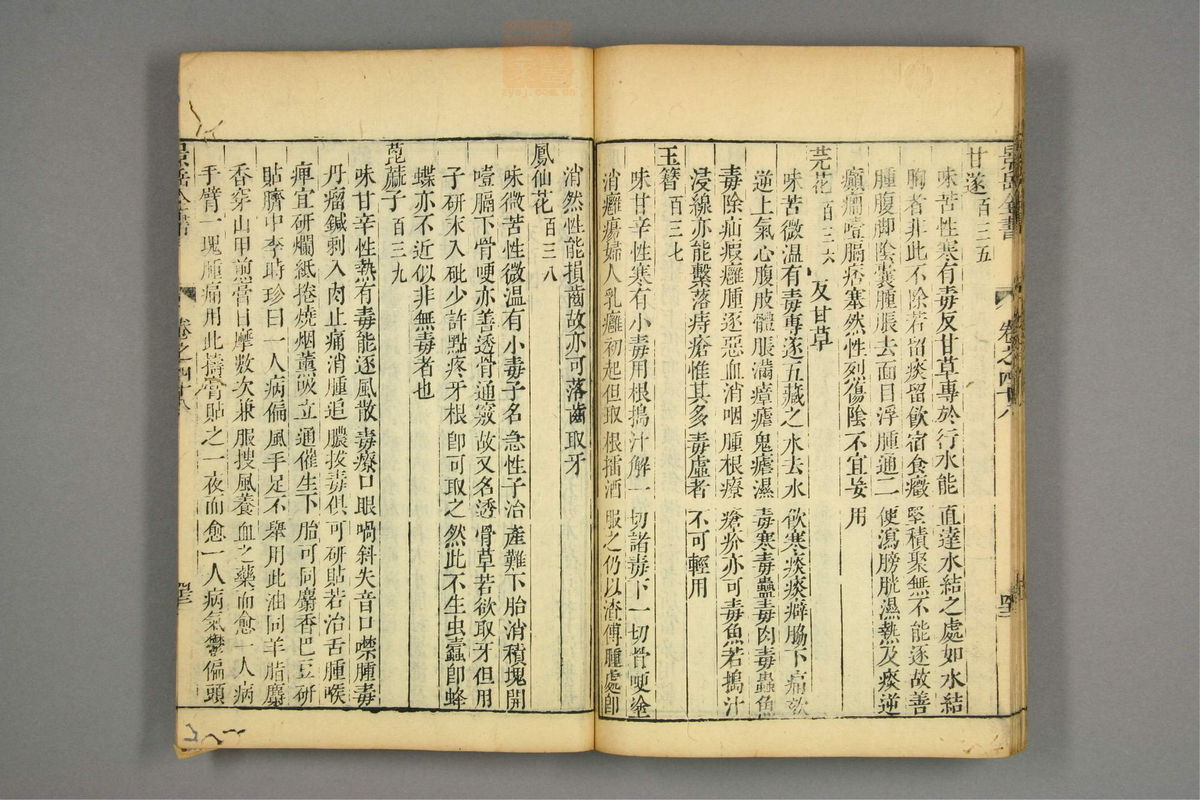 甘遂百三五
味苦性寒有毒反甘草專於行水能直達水結之處如水結
胸者非此不除若留痰留飲宿食癥堅積聚無不能逐故善
腫腹脚陰囊腫脹去面目浮腫通二便瀉膀胱濕熱及痰逆
癲癇噎膈痞塞然性烈傷陰不宜妄用
芫花百三六 反甘草
味苦微温有毒專逐五藏之水去水飲寒痰痰癖脇下痛欬
逆上氣心腹肢體脹滿瘴瘧鬼瘧濕毒寒毒蠱毒肉毒蟲魚
毒除疝瘕癰腫逐惡血消咽腫根療瘡疥亦可毒魚若搗汁
浸線亦能繫落痔瘡惟其多毒虛者不可輕用
玉簪百三七
味甘辛性寒有小毒用根搗汁解一切諸毒下一切骨哽塗
消癰瘍婦人乳癰初起但取根擂酒服之仍以渣傅腫處即
景岳全書
卷之四十八
消然性能損齒故亦可落齒取牙
鳳仙花百三八
味微苦性微温有小毒子名急性子治產難下胎消積塊開
噎膈下骨哽亦善透骨通竅故又名透骨草若欲取牙但用
子研末入砒少許點疼牙根即可取之然此不生虫蠹即蜂
蝶亦不近似非無毒者也
萞蔴子百三九
味甘辛性熱有毒能逐風散毒療口眼喎斜失音口噤腫毒
丹瘤鍼刺入肉止痛消腫追膿拔毒俱可研貼若治舌腫喉
痺宜研爛紙捲燒烟薰吸立通催生下胎可同麝香巴豆研
貼臍中李時珍曰一人病偏風手足不舉用此油同羊脂麝
香穿山甲煎膏日摩數次兼服搜風養血之藥而愈一人病
手臂一塊腫痛用此擣膏貼之一夜而愈一人病氣鬱偏頭
景岳全書
卷之四十八